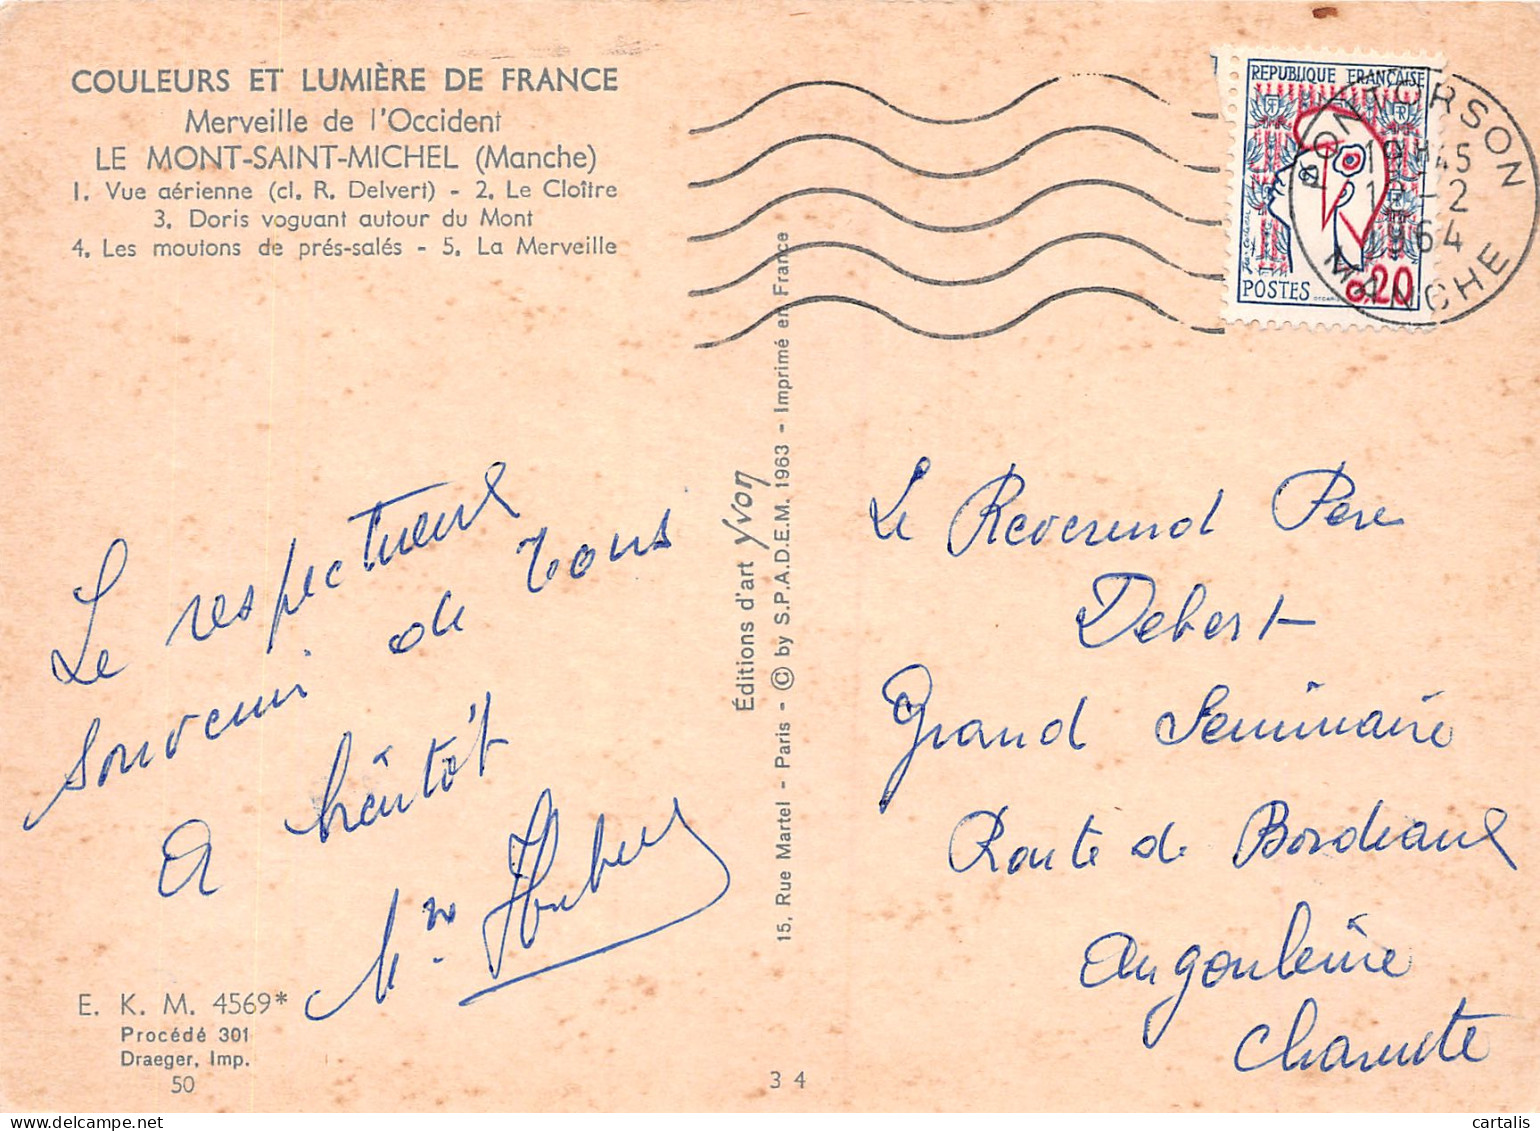 COULEURS ET LUMIÈRE DE FRANCE
Merveille de l'Occident
LE MONT-SAINT-MICHEL (Manche)
1. Vue aérienne (cl. R. Delvert) - 2. Le Cloître
3. Doris voguant autour du Mont
4. Les moutons de prés-salés - 5. La Merveille
REPUBLIQUE FRANÇAISE
POSTES
0,20
PONTORSON
19H45
-2
1964
MANCHE
Le respectueux
souvenir de tous
A bientôt
Éditions d'art Yvon
15, Rue Martel - Paris - © by S.P.A.D.E.M. 1963 - Imprimé en France
Le Reverend Père
Debert
Grand Seminaire
Route de Bordeaux
Angoulême
Charente
E. K. M. 4569*
Procédé 301
Draeger, Imp.
50
3 4
cartalis